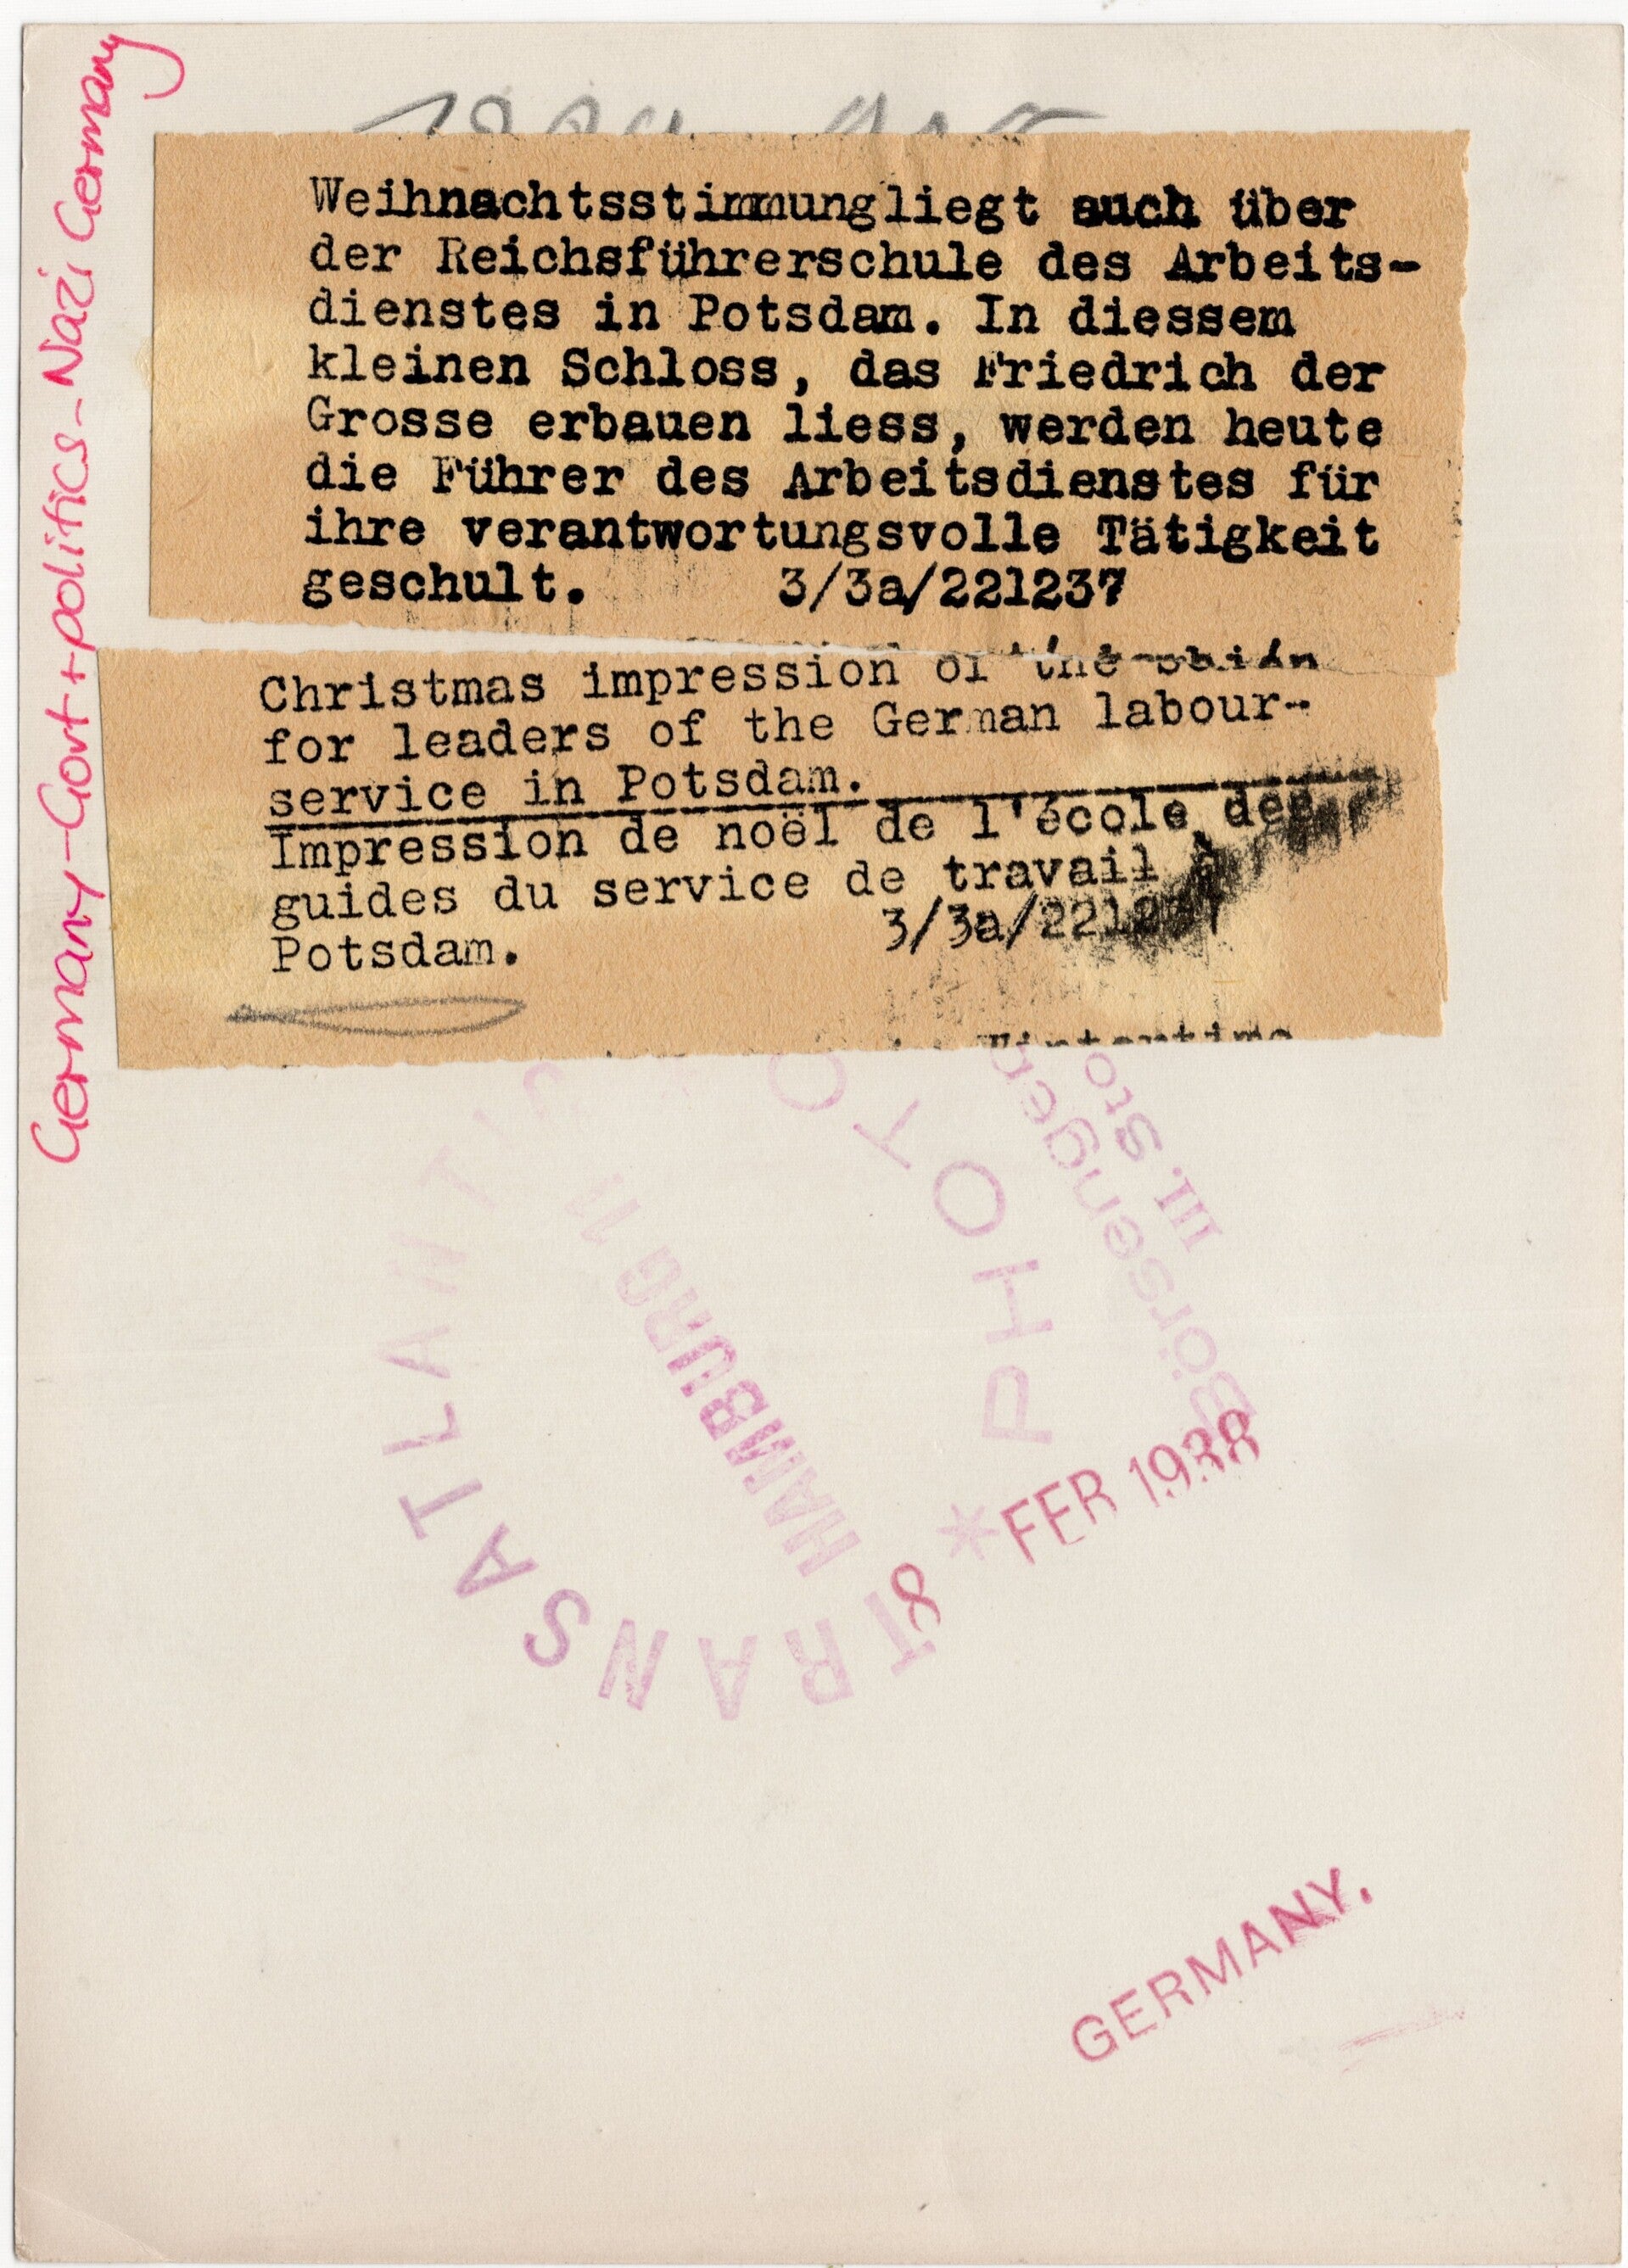 Germany-Govt+politics-Nazi Germany
Weihnachtsstimmung liegt auch über
der Reichsführerschule des Arbeits-
dienstes in Potsdam. In diessem
kleinen Schloss, das Friedrich der
Grosse erbauen liess, werden heute
die Führer des Arbeitsdienstes für
ihre verantwortungsvolle Tätigkeit
geschult. 3/3a/221237
Christmas impression of the
for leaders of the German labour-
service in Potsdam.
Impression de noël de l'école des
guides du service de travail à
Potsdam. 3/3a/221237
Wintertime
TRANSATLANTIC
PHOTO
HAMBURG 11
III. Sto
8 FEB 1938
GERMANY.